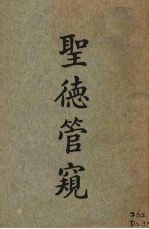 聖德管窺